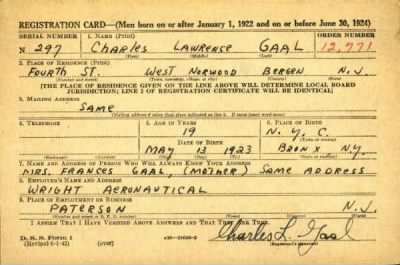 REGISTRATION CARD—(Men born on or after January 1, 1922 and on or before June 30, 1924)
SERIAL NUMBER 1. NAME (Print) ORDER NUMBER
N 297 CHARLES LAWRENCE GAAL 12,771
2. PLACE OF RESIDENCE (Print)
FOURTH ST. WEST NORWOOD BERGEN N.J.
[THE PLACE OF RESIDENCE GIVEN ON THE LINE ABOVE WILL DETERMINE LOCAL BOARD
JURISDICTION; LINE 2 OF REGISTRATION CERTIFICATE WILL BE IDENTICAL]
3. MAILING ADDRESS
SAME
4. TELEPHONE 5. AGE IN YEARS 6. PLACE OF BIRTH
19 N.Y.C.
DATE OF BIRTH
MAY 13 1923 BRONX N.Y.
7. NAME AND ADDRESS OF PERSON WHO WILL ALWAYS KNOW YOUR ADDRESS
MRS. FRANCES GAAL, (MOTHER) SAME ADDRESS
8. EMPLOYER'S NAME AND ADDRESS
WRIGHT AERONAUTICAL
9. PLACE OF EMPLOYMENT OR BUSINESS
PATERSON N.J.
I AFFIRM THAT I HAVE VERIFIED ABOVE ANSWERS AND THAT THEY ARE TRUE.
D. S. S. Form 1
(Revised 6-1-42) (over) Charles L. Gaal
(Registrant's signature)